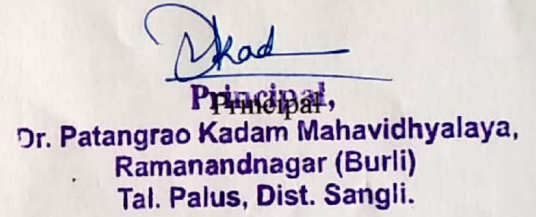 Principal,
Principal
Dr. Patangrao Kadam Mahavidhyalaya,
Ramanandnagar (Burli)
Tal. Palus, Dist. Sangli.